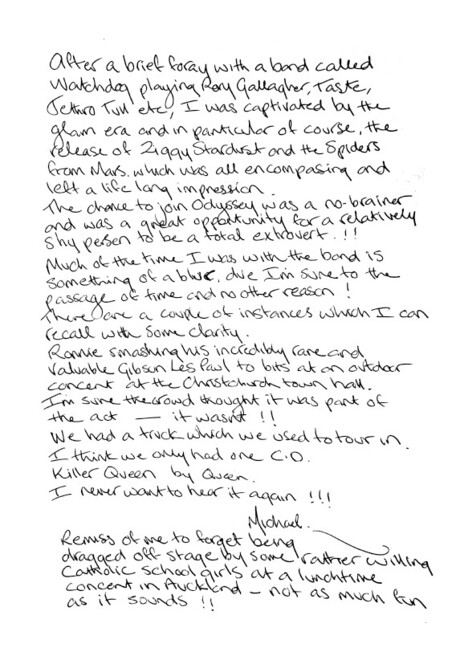 After a brief foray with a band called
Watchdog playing Rory Gallagher, Taste,
Jethro Tull etc, I was captivated by the
glam era and in particular of course, the
release of Ziggy Stardust and the Spiders
from Mars. which was all encompasing and
left a life long impression.
The chance to join Odyssey was a no-brainer
and was a great opportunity for a relatively
shy person to be a total extrovert.!!!
Much of the time I was with the band is
something of a blur, due I'm sure to the
passage of time and no other reason!
There are a couple of instances which I can
recall with some clarity.
Ronnie smashing his incredibly rare and
valuable Gibson Les Paul to bits at an outdoor
concert at the Christchurch town hall.
I'm sure the crowd thought it was part of
the act — it wasn't!!
We had a truck which we used to tour in.
I think we only had one C.D.
Killer Queen by Queen.
I never want to hear it again!!!
Michael.
Remiss of me to forget being
dragged off stage by some rather willing
Catholic school girls at a lunchtime
concert in Auckland – not as much fun
as it sounds!!